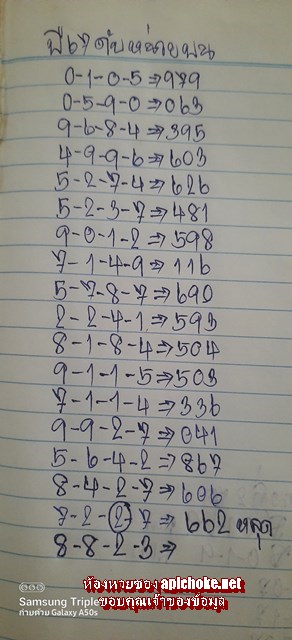 ปี67ดับหน่วยบน
0-1-0-5⇒979
0-5-9-0⇒063
9-6-8-4⇒395
4-9-9-6⇒603
5-2-7-4⇒626
5-2-3-7⇒481
9-0-1-2⇒598
7-1-4-9⇒116
5-7-8-7⇒690
2-2-4-1⇒593
8-1-8-4⇒504
9-1-1-5⇒503
7-1-1-4⇒336
9-9-2-7⇒041
5-6-4-2⇒867
8-4-2-7⇒606
7-2-2-7⇒662 หลุด
8-8-2-3⇒
ห้องหวยของapichoke.net
ขอบคุณเจ้าของข้อมูล
Samsung Triple
ถ่ายด้วย Galaxy A50s